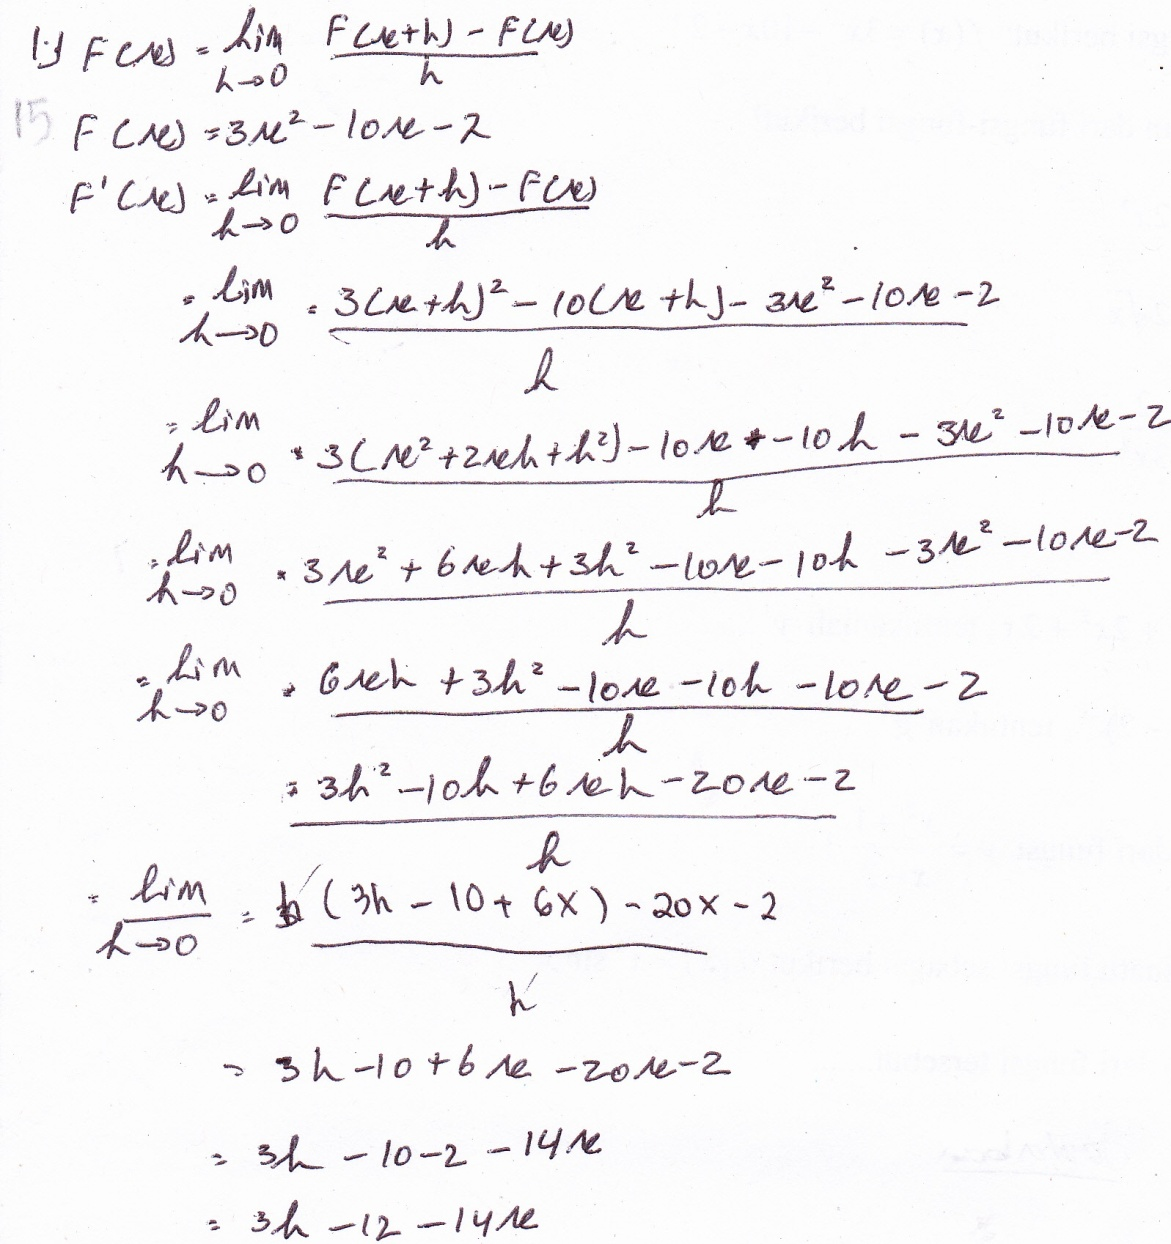 1.) F(x) = lim h→0 F(x+h) - F(x) / h
15
F(x) = 3x² - 10x - 2
F'(x) = lim h→0 F(x+h) - F(x) / h
= lim h→0 = 3(x+h)² - 10(x+h) - 3x² - 10x - 2 / h
= lim h→0 = 3(x²+2xh+h²) - 10x - 10h - 3x² - 10x - 2 / h
= lim h→0 = 3x² + 6xh + 3h² - 10x - 10h - 3x² - 10x - 2 / h
= lim h→0 = 6xh + 3h² - 10x - 10h - 10x - 2 / h
= 3h² - 10h + 6xh - 20x - 2 / h
= lim h→0 = h (3h - 10 + 6x) - 20x - 2 / h
= 3h - 10 + 6x - 20x - 2
= 3h - 10 - 2 - 14x
= 3h - 12 - 14x